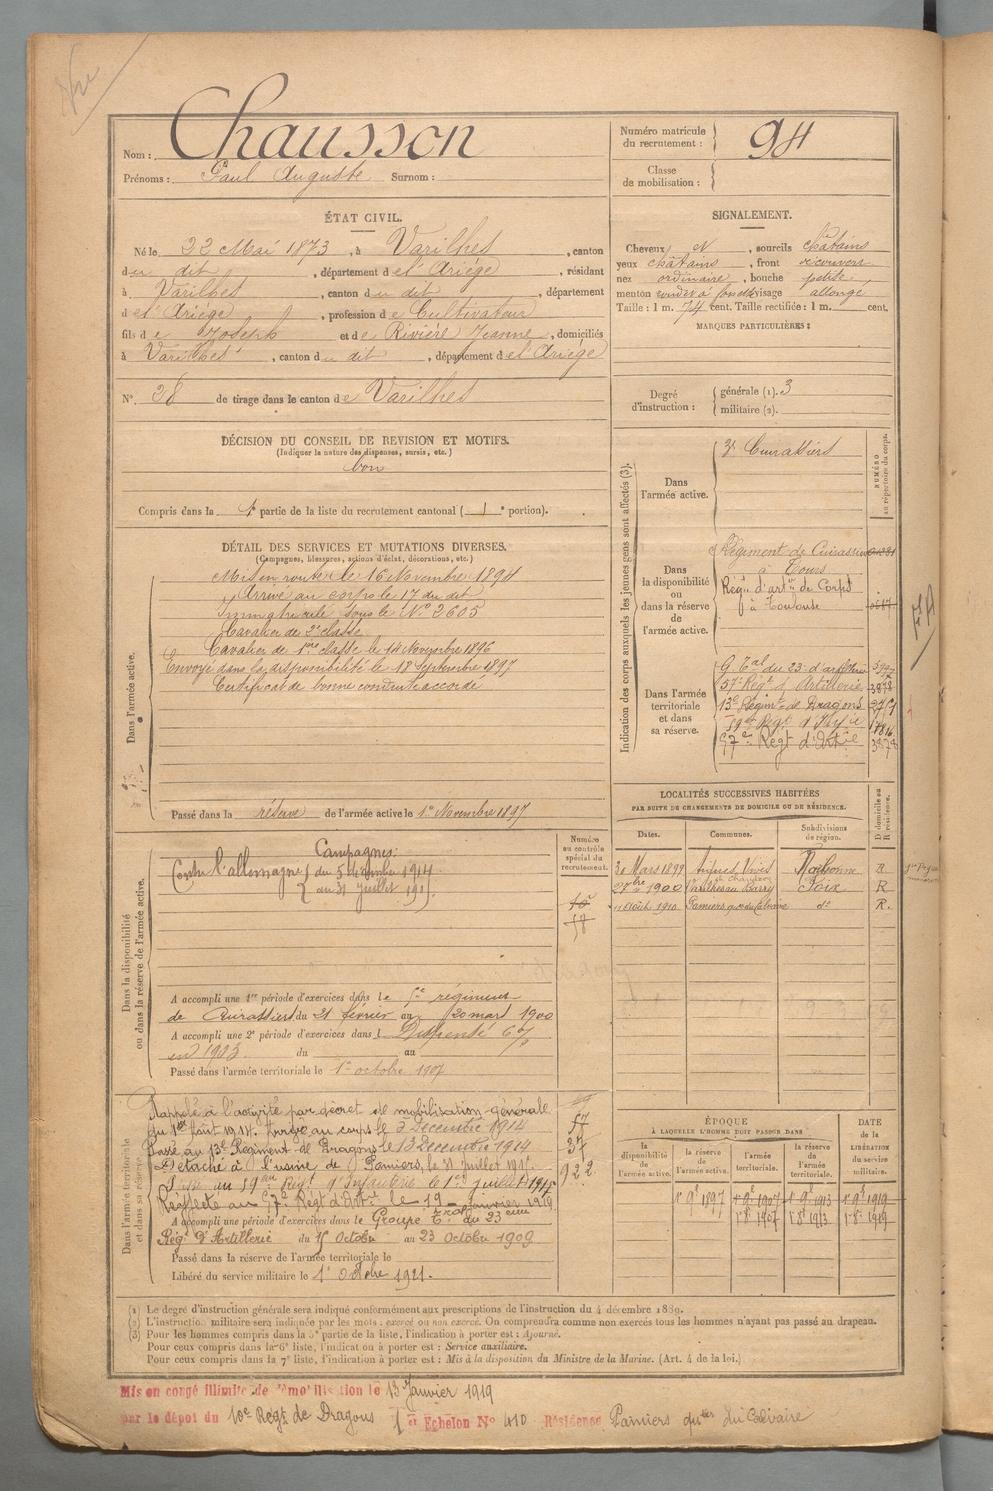 Nom : Chausson
Prénoms : Paul Auguste Surnom :
Numéro matricule du recrutement : 94
Classe de mobilisation :
ÉTAT CIVIL.
Né le 22 Mai 1873, à Varilhes, canton
du dit, département de l'Ariège, résidant
à Varilhes, canton du dit, département
de l'Ariège, profession de Cultivateur
fils de Joseph et de Rivière Jeanne, domiciliés
à Varilhes, canton du dit, département de l'Ariège
N° 28 de tirage dans le canton de Varilhes
SIGNALEMENT.
Cheveux, sourcils châtains
yeux châtains, front découvert
nez ordinaire, bouche petite
menton rond, visage allongé
Taille : 1 m. 74 cent. Taille rectifiée : 1 m. cent.
MARQUES PARTICULIÈRES :
Degré d'instruction : générale (1). 3
militaire (2).
DÉCISION DU CONSEIL DE REVISION ET MOTIFS.
(Indiquer la nature des dispenses, sursis, etc.)
bon
Compris dans la 1e partie de la liste du recrutement cantonal ( 1 e portion).
DÉTAIL DES SERVICES ET MUTATIONS DIVERSES.
(Campagnes, blessures, actions d'éclat, décorations, etc.)
Dans l'armée active.
Mis en route le 16 Novembre 1894
Arrivé au corps le 17 du dit
Immatriculé sous le N° 2605
Cavalier de 2e classe
Cavalier de 1ère classe le 14 Novembre 1896
Envoyé dans la disponibilité le 18 Septembre 1897
Certificat de bonne conduite accordé
Passé dans la réserve de l'armée active le 1er Novembre 1897
Indication des corps auxquels les jeunes gens sont affectés (3).
NUMÉRO au répertoire du corps.
Dans l'armée active.
3e Cuirassiers
Dans la disponibilité ou dans la réserve de l'armée active.
Régiment de Cuirassiers
à Tours
Régt d'artie de Corps
à Toulouse
Dans l'armée territoriale et dans sa réserve.
G. Tal du 23e d'artillerie
57e Régt d'Artillerie 3878
13e Régimt de Dragons
59e Régt d'Infie
57e Régt d'Artie 3878
LOCALITÉS SUCCESSIVES HABITÉES
PAR SUITE DE CHANGEMENTS DE DOMICILE OU DE RÉSIDENCE.
Dates. Communes. Subdivisions de région. D domicile ou R résidence.
30 Mars 1899 Narbonne R
27 bre 1900 Varilhes au Barry Foix R
11 Août 1910 Pamiers qer du Calvaire do R.
Dans la disponibilité ou dans la réserve de l'armée active.
Numéro au contrôle spécial du recrutement.
Campagnes:
Contre l'allemagne du 5 décembre 1914
au 31 juillet 191
58
A accompli une 1re période d'exercices dans le 5e régiment
de Cuirassiers du 21 février au 20 mars 1900
A accompli une 2e période d'exercices dans l Dispensé
en 1903 du au
Passé dans l'armée territoriale le 1er octobre 1907
Dans l'armée territoriale et dans sa réserve.
Rappelé à l'activité par décret de mobilisation générale
du 1er Août 1914. Arrivé au corps le 5 Décembre 1914
Passé au 13e Régiment de Dragons le 13 Décembre 1914
Détaché à l'usine de Pamiers, le 31 juillet 191
Passé au 59e Régt d'Infanterie le 1er juillet 1917
Réaffecté au 57e Régt d'Artie le 19 janvier 1919
57
37
922
A accompli une période d'exercices dans le Groupe Torial du 23eme
Régt d'Artillerie du 15 Octobre au 23 Octobre 1909
Passé dans la réserve de l'armée territoriale le
Libéré du service militaire le 1er Octobre 1921.
ÉPOQUE À LAQUELLE L'HOMME DOIT PASSER DANS
DATE de la LIBÉRATION du service militaire.
la disponibilité de l'armée active. la réserve de l'armée active. l'armée territoriale. la réserve de l'armée territoriale.
1r 9e 1897 1r 9e 1907 1r 9e 1913 1r 9e 1919
1r 8e 1907 1r 8e 1913 1r 8e 1919
(1) Le degré d'instruction générale sera indiqué conformément aux prescriptions de l'instruction du 4 décembre 1889.
(2) L'instruction militaire sera indiquée par les mots : exercé ou non exercé. On comprendra comme non exercés tous les hommes n'ayant pas passé au drapeau.
(3) Pour les hommes compris dans la 5e partie de la liste, l'indication à porter est : Ajourné.
Pour ceux compris dans la 6e liste, l'indication à porter est : Service auxiliaire.
Pour ceux compris dans la 7e liste, l'indication à porter est : Mis à la disposition du Ministre de la Marine. (Art. 4 de la loi.)
Mis en congé illimité de démobilisation le 13 Janvier 1919
par le dépôt du 10e Régt de Dragons 1er Echelon N° 410 Résidence Pamiers quer du Calvaire